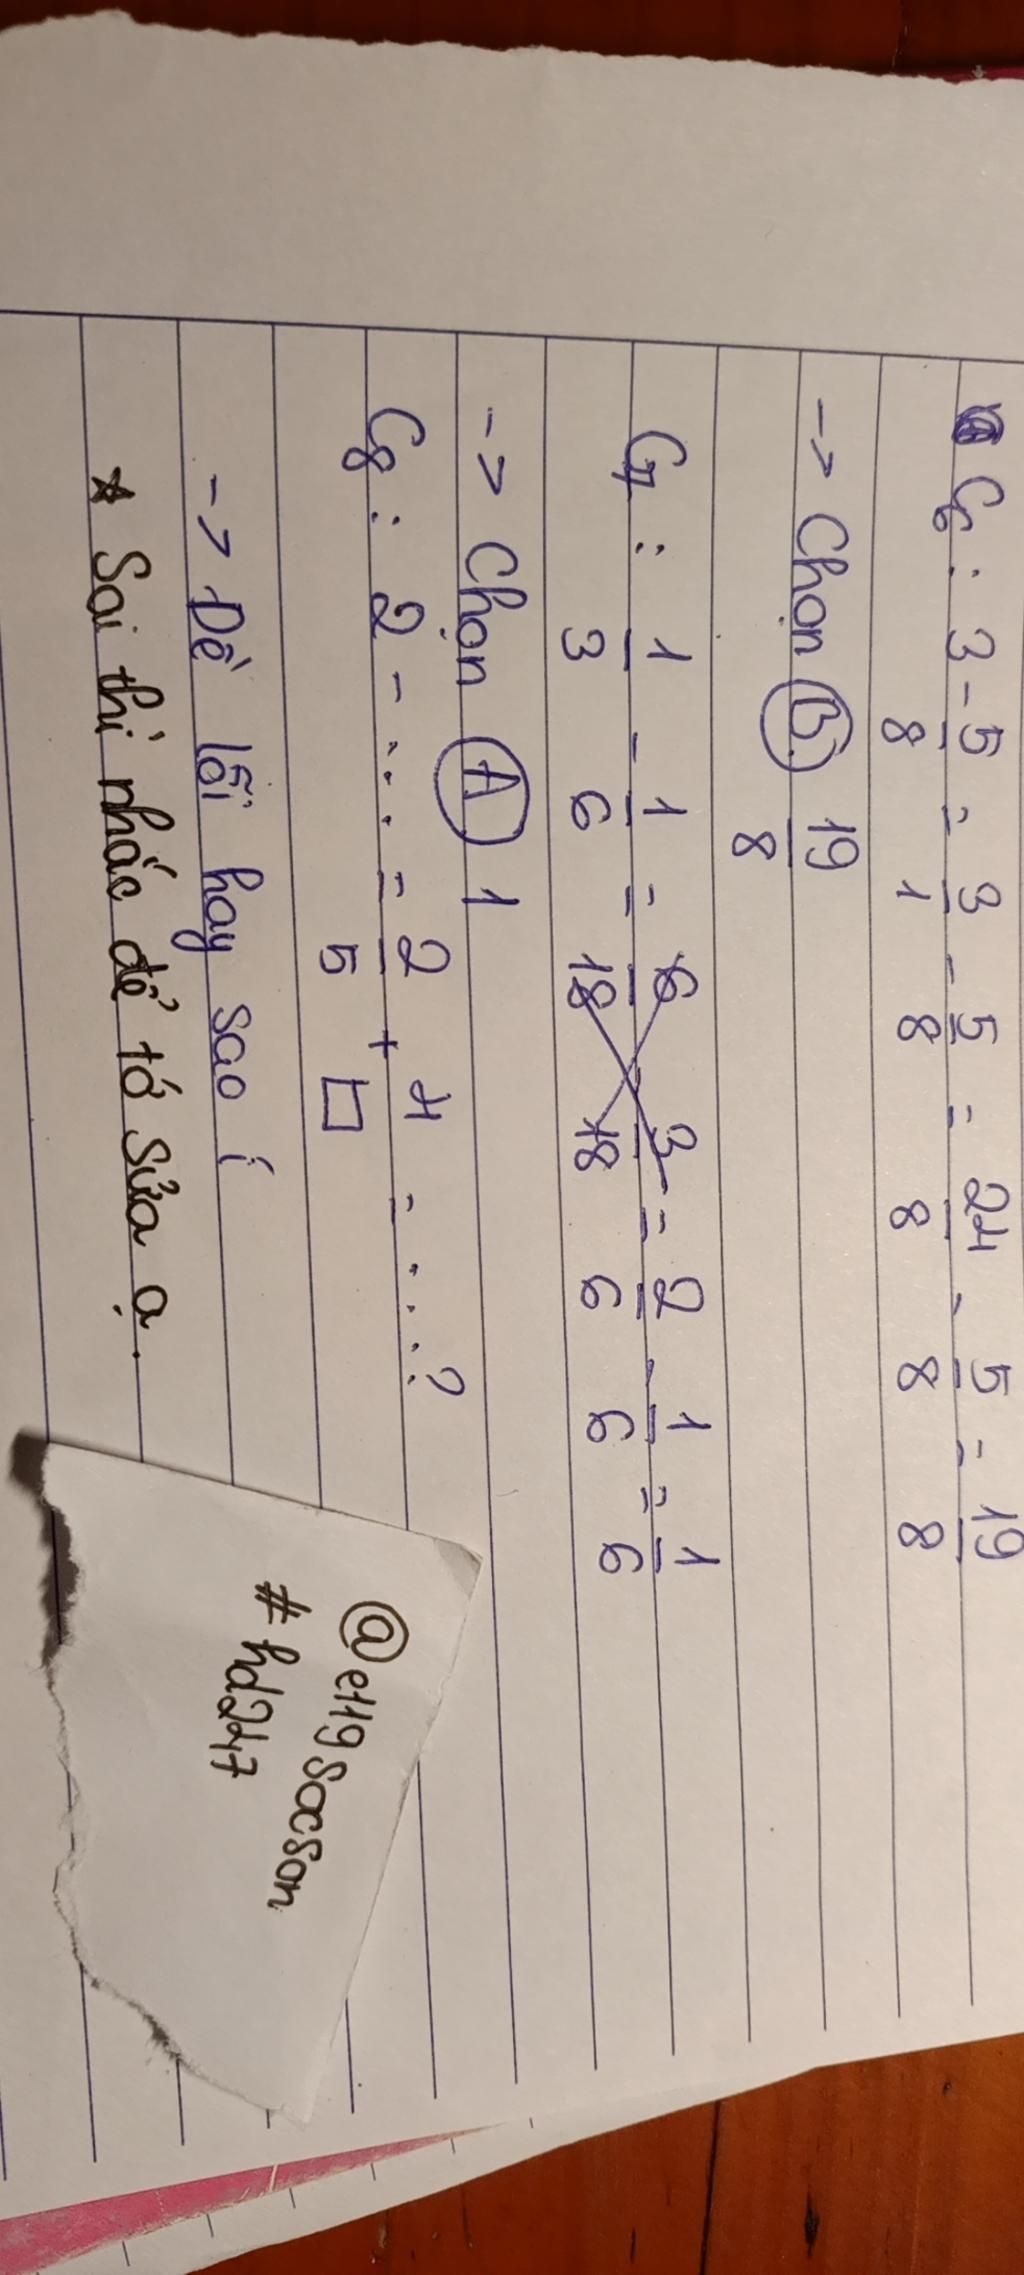 C6 : 3 - 5/8 = 3/1 - 5/8 = 24/8 - 5/8 = 19/8
-> Chọn B. 19/8
C7 : 1/3 - 1/6 = 6/18 - 3/18 = 2/6 - 1/6 = 1/6
-> Chọn A 1
C8 : 2 - ... = 2/5 + 4/□ - ...?
-> Dề lỗi hay sao í
* Sai thì nhắc để tớ sửa ạ.
@e119socson
#hd247